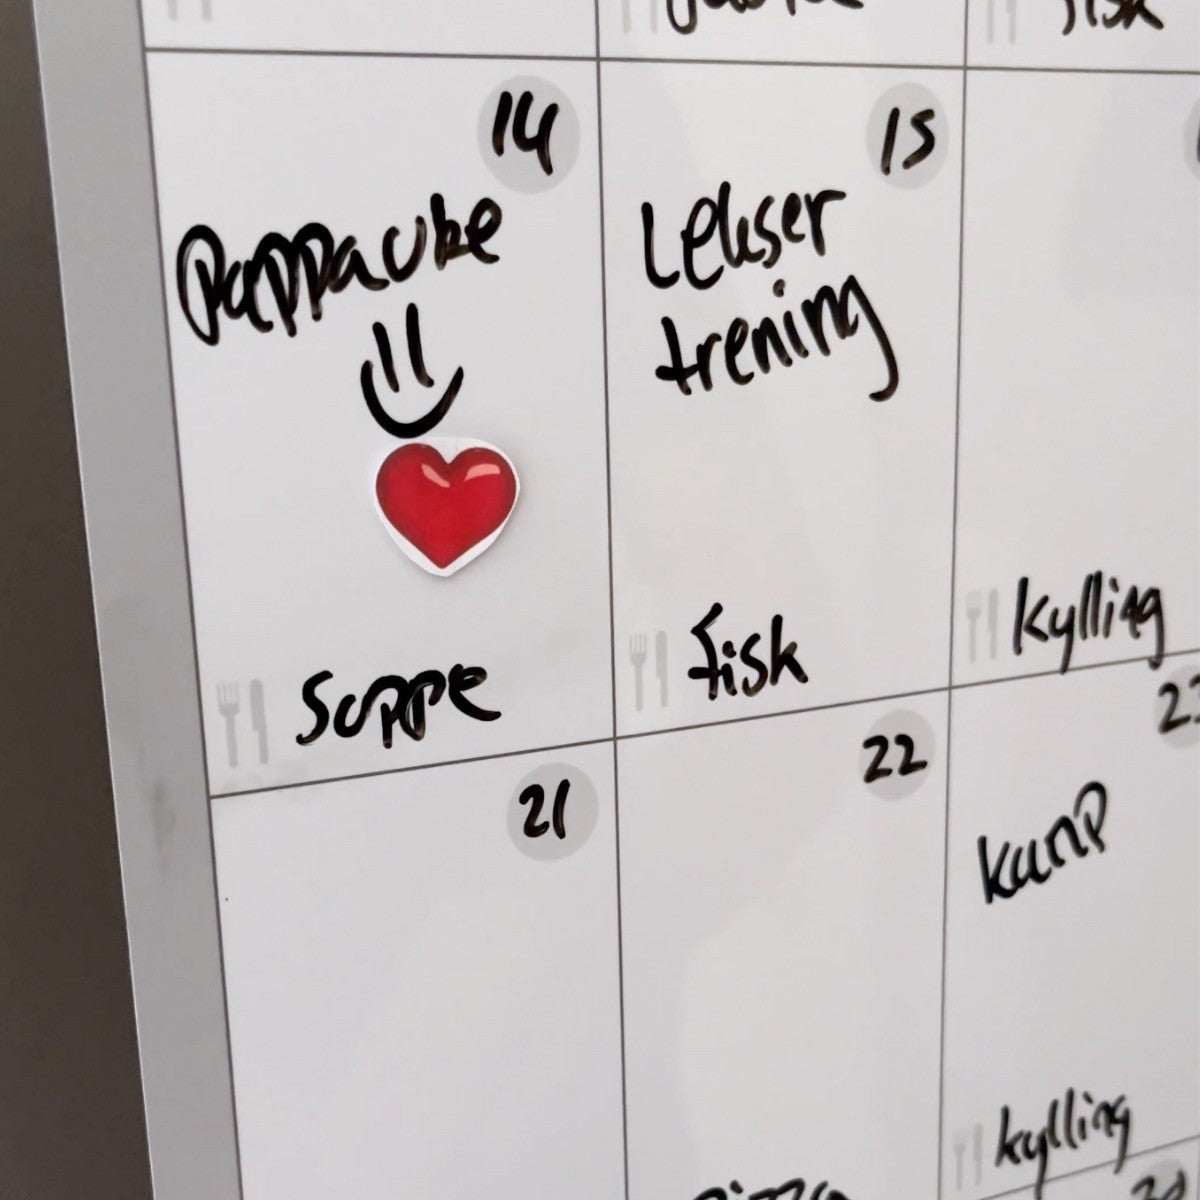 fisk
14
15
Pappauke
Lekser
trening
Suppe
fisk
kylling
21
22
23
kamp
kylling
pizza